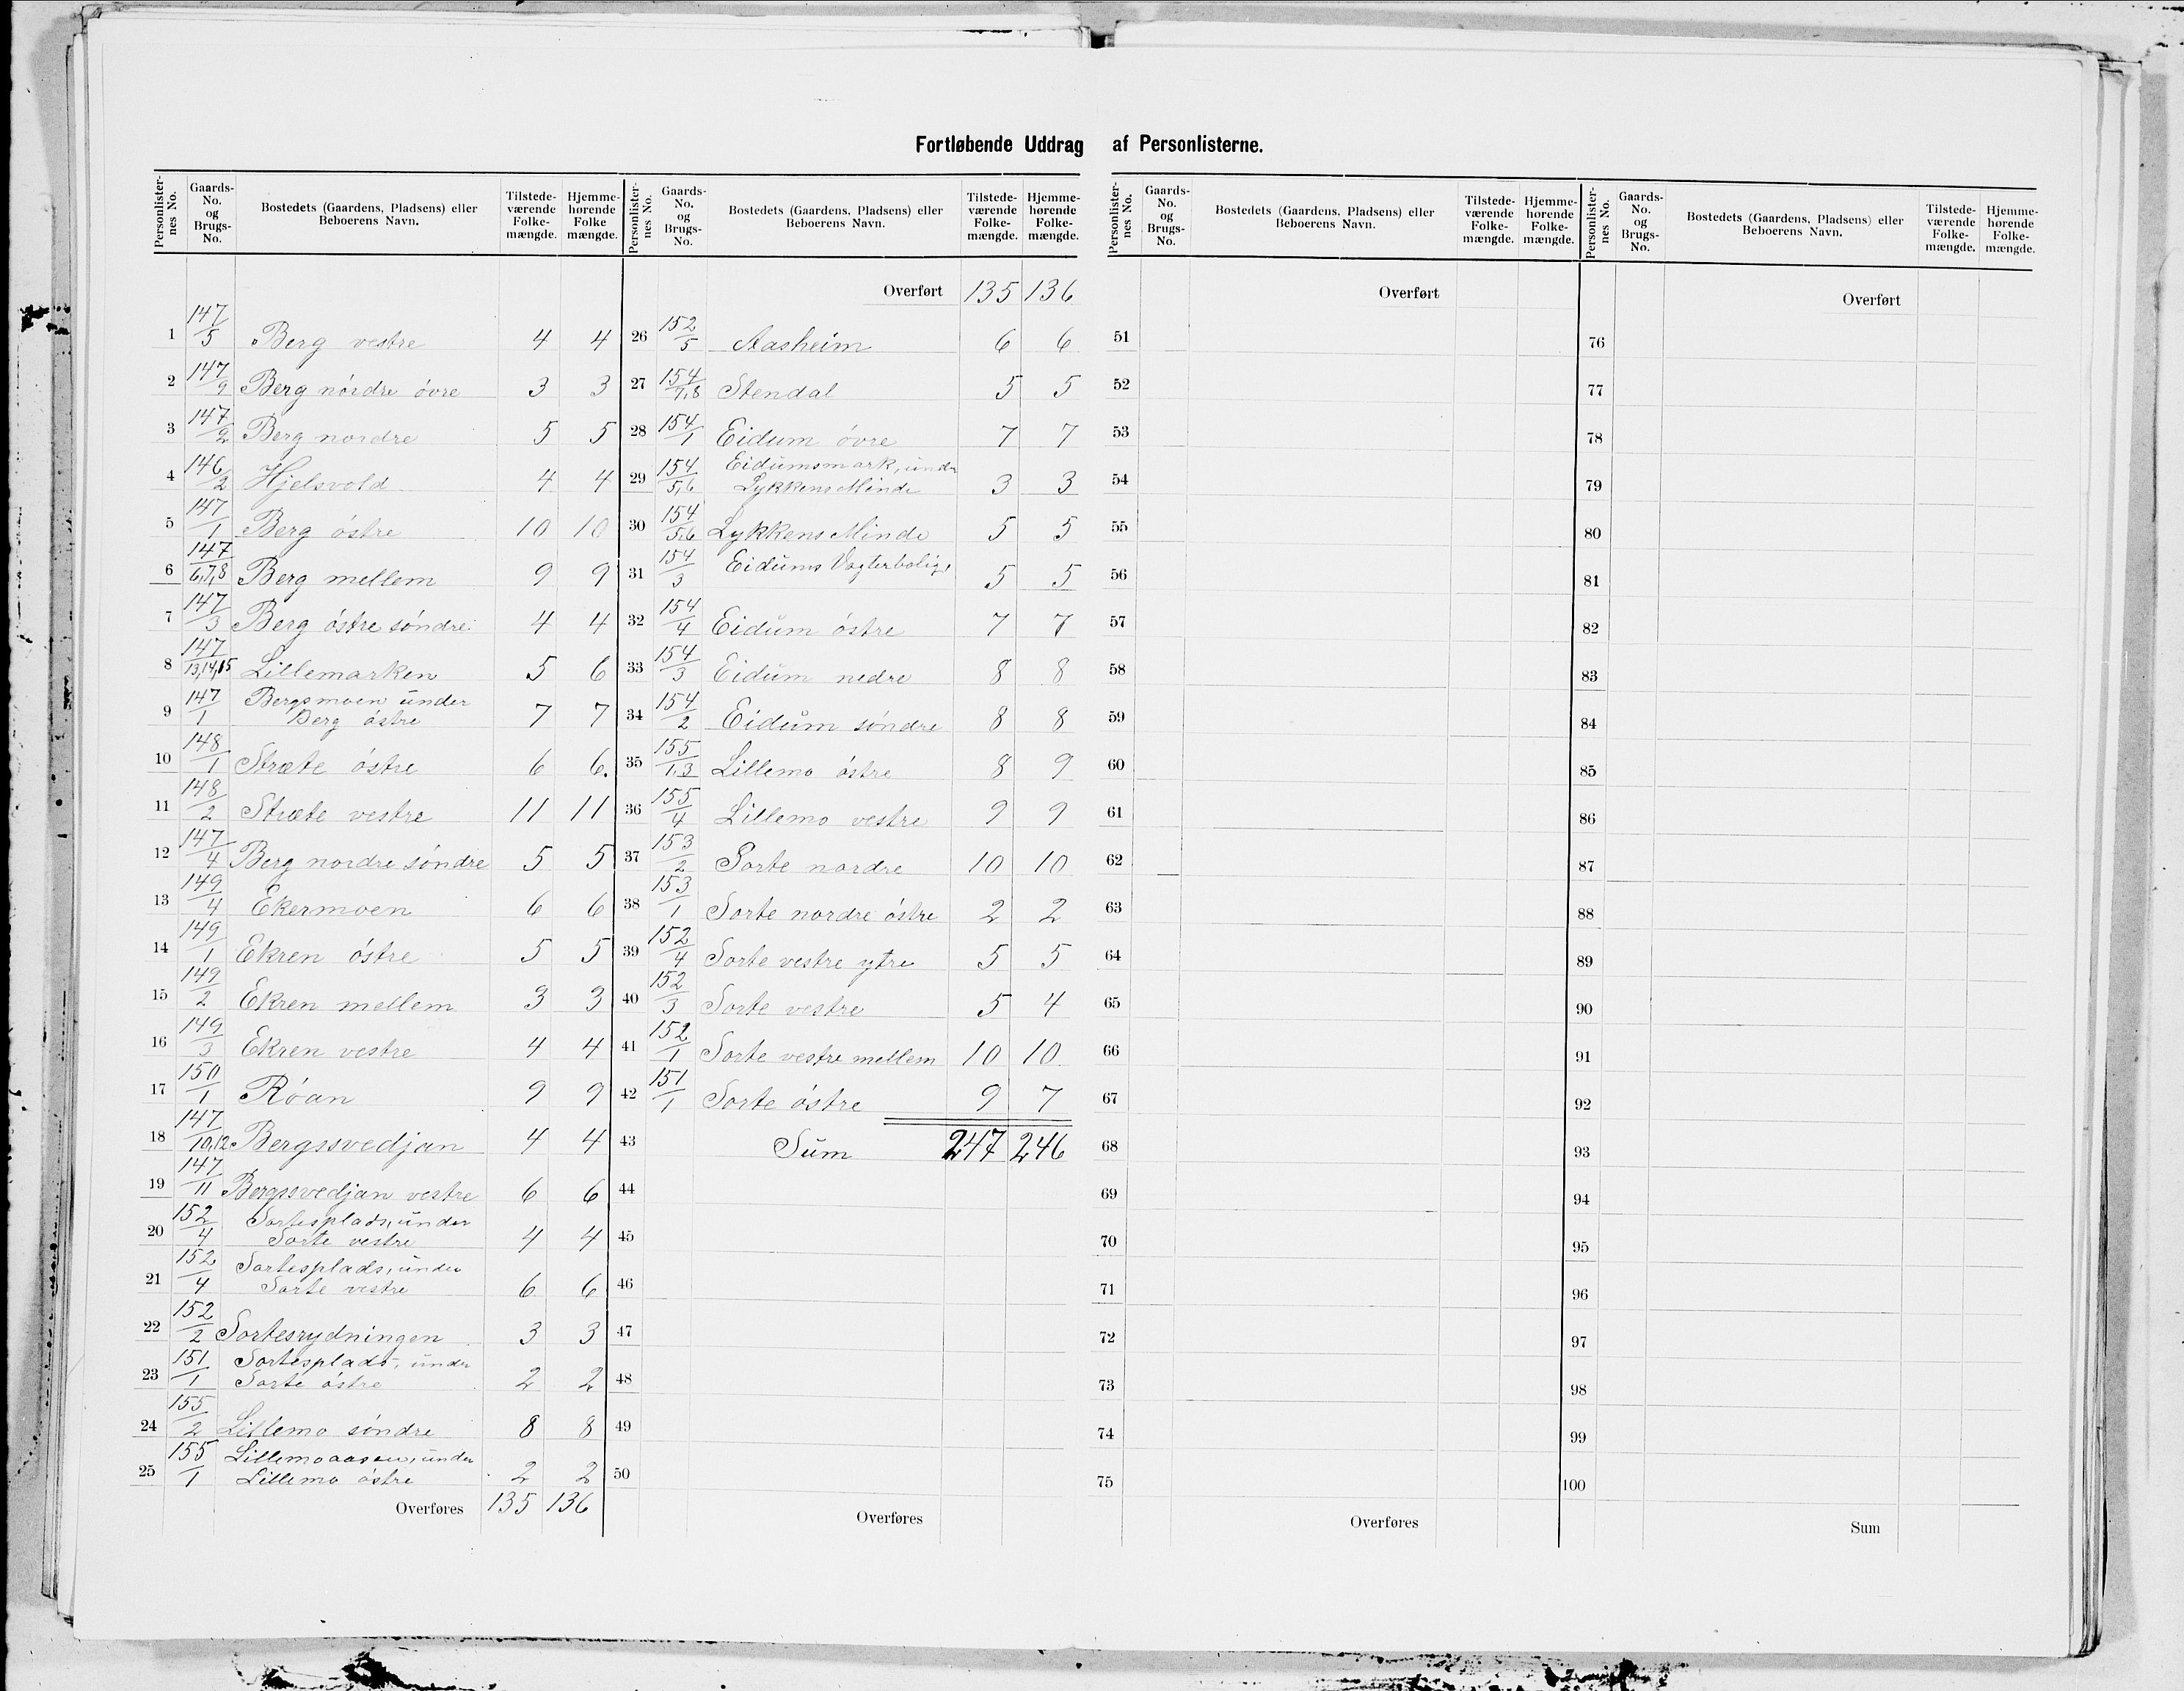 Fortløbende Uddrag af Personlisterne.
Personlister-nes No. | Gaards-No. og Brugs-No. | Bostedets (Gaardens, Pladsens) eller Beboerens Navn. | Tilstede-værende Folke-mængde. | Hjemme-hørende Folke mængde.
1 147/5 Berg vestre 4 4
2 147/9 Berg nórdre óvre 3 3
3 147/2 Berg nordre 5 5
4 146/2 Hjelsvold 4 4
5 147/1 Berg óstre 10 10
6 147/6,7,8 Berg mellem 9 9
7 147/3 Berg óstre søndre 4 4
8 147/13,14,15 Lillemarken 5 6
9 147/1 Bergsmoen under
Berg óstre 7 7
10 148/1 Stræte óstre 6 6.
11 148/2 Stræte vestre 11 11
12 147/4 Berg nordre søndre 5 5
13 149/4 Ekermoen 6 6
14 149/1 Ekren óstre 5 5
15 149/2 Ekren mellem 3 3
16 149/3 Ekren vestre 4 4
17 150/1 Róan 9 9
18 147/10,12 Bergssvedjan 4 4
19 147/11 Bergssvedjan vestre 6 6
20 152/4 Sortesplads, under
Sorte vestre 4 4
21 152/4 Sortesplads, under
Sorte vestre 6 6
22 152/2 Sortesrydningen 3 3
23 151/1 Sortesplads, under
Sorte óstre 2 2
24 155/2 Lillemo søndre 8 8
25 155/1 Lillemoaasen, under
Lillemo óstre 2 2
Overføres 135 136
Personlister-nes No. | Gaards-No. og Brugs-No. | Bostedets (Gaardens, Pladsens) eller Beboerens Navn. | Tilstede-værende Folke-mængde. | Hjemme-hørende Folke-mængde.
Overført 135 136
26 152/5 Aasheim 6 6
27 154/7,8 Stendal 5 5
28 154/1 Eidum óvre 7 7
29 154/5,6 Eidumsmark, under
Lykkens Minde 3 3
30 154/5,6 Lykkens Minde 5 5
31 154/3 Eidums Vogterbolig 5 5
32 154/4 Eidum óstre 7 7
33 154/3 Eidum nedre 8 8
34 154/2 Eidum søndre 8 8
35 155/1,3 Lillemo óstre 8 9
36 155/4 Lillemo vestre 9 9
37 153/2 Sorte nordre 10 10
38 153/1 Sorte nordre óstre 2 2
39 152/4 Sorte vestre ytre 5 5
40 152/3 Sorte vestre 5 4
41 152/1 Sorte vestre mellem 10 10
42 151/1 Sorte óstre 9 7
43 Sum 247 246
44
45
46
47
48
49
50
Overføres
Personlister-nes No. | Gaards-No. og Brugs-No. | Bostedets (Gaardens, Pladsens) eller Beboerens Navn. | Tilstede-værende Folke-mængde. | Hjemme-hørende Folke-mængde.
Overført
51
52
53
54
55
56
57
58
59
60
61
62
63
64
65
66
67
68
69
70
71
72
73
74
75
Overføres
Personlister-nes No. | Gaards-No. og Brugs-No. | Bostedets (Gaardens, Pladsens) eller Beboerens Navn. | Tilstede-værende Folke-mængde. | Hjemme-hørende Folke-mængde.
Overført
76
77
78
79
80
81
82
83
84
85
86
87
88
89
90
91
92
93
94
95
96
97
98
99
100
Sum